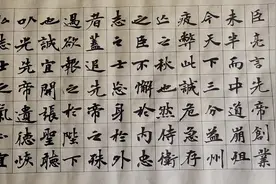 臣亮言先帝創業
未半而中道崩殂
今天下三分益州
疲弊此誠危急存
亡之秋也然侍衛
之臣不懈於內忠
志之士忘身於外
者蓋追先帝之殊
遇欲報之於陛下
也誠宜開張聖聽
以光先帝遺德恢
弘志士之氣不宜